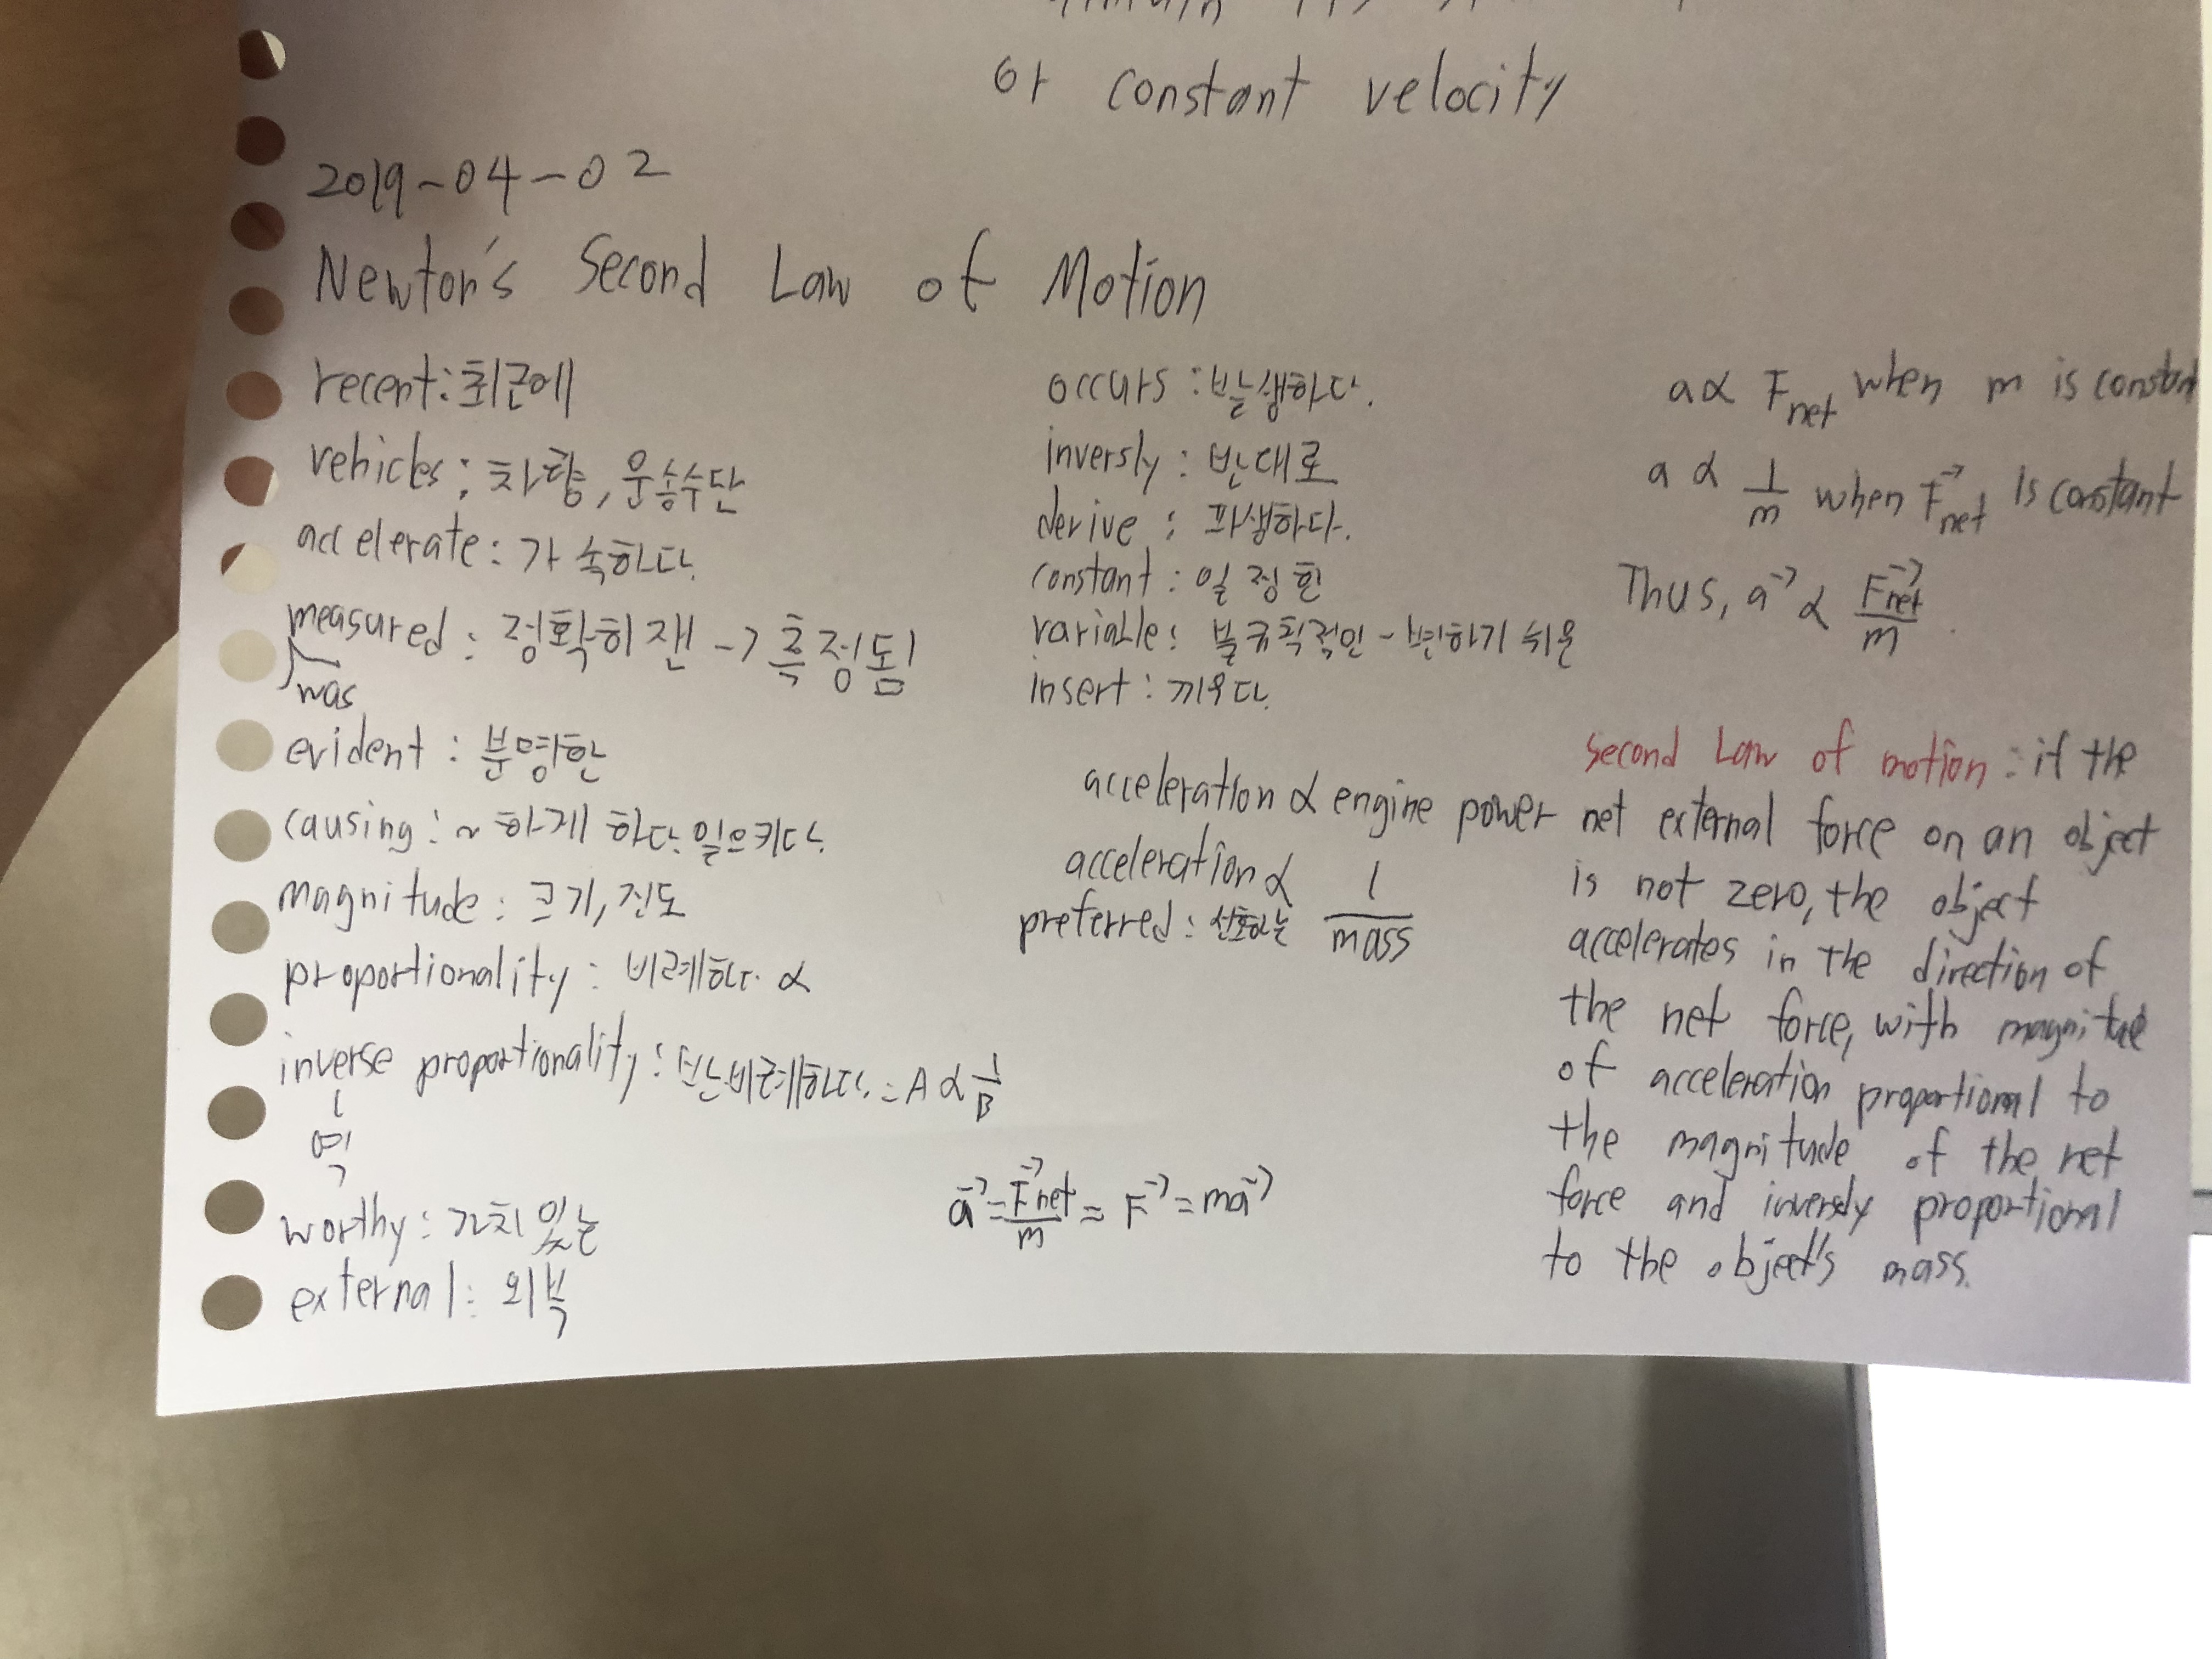 or constant velocity
2019-04-02
Newton's Second Law of Motion
recent: 최근에
vehicles: 차량, 운송수단
accelerate: 가속하다.
measured: 정확히 잰 -> 측정됨
was
evident: 분명한
causing: ~하게 하다. 일으키다.
magnitude: 크기, 진도
proportionality: 비례하다. ∝
inverse proportionality: 반비례하다. = A ∝ 1/B
역
worthy: 가치 있는
external: 외부
occurs: 발생하다.
inversly: 반대로
derive: 파생하다.
constant: 일정한
variable: 불규칙적인 - 변하기 쉬운
insert: 끼우다.
acceleration ∝ engine power
acceleration ∝ 1/mass
preferred: 선호하는
a→ = F→net/m = F→ = ma→
a ∝ Fnet when m is constant
a ∝ 1/m when F→net is constant
Thus, a→ ∝ F→net/m.
Second Law of motion: if the
net external force on an object
is not zero, the object
accelerates in the direction of
the net force, with magnitude
of acceleration proportional to
the magnitude of the net
force and inversly proportional
to the object's mass.